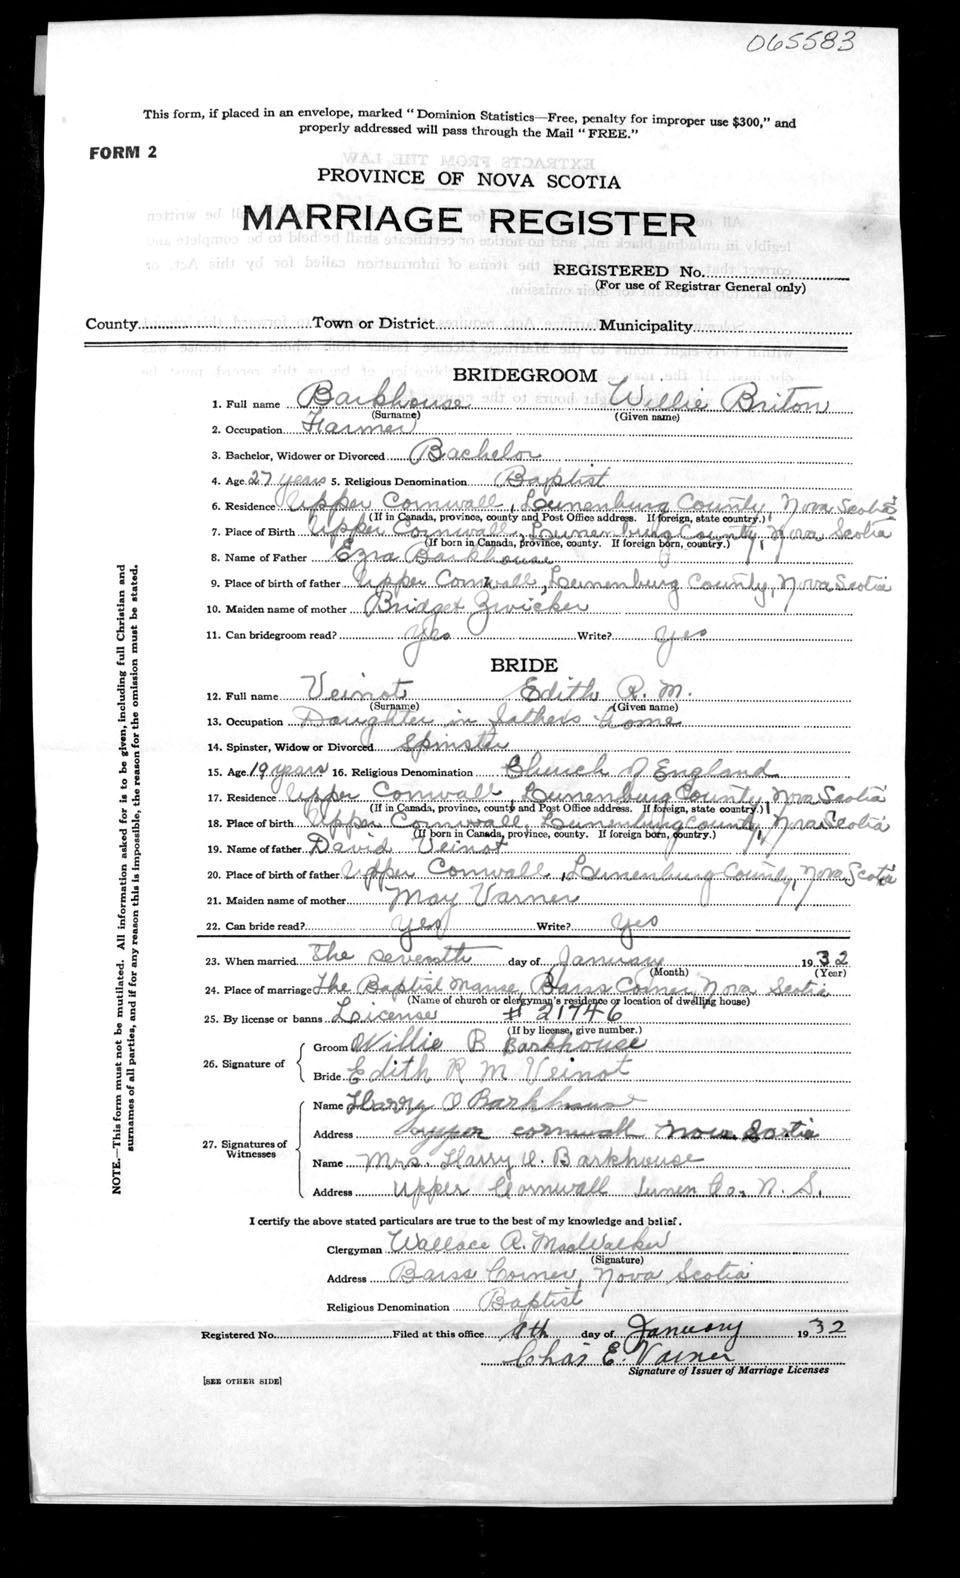 065583
This form, if placed in an envelope, marked "Dominion Statistics—Free, penalty for improper use $300," and
properly addressed will pass through the Mail "FREE."
FORM 2
PROVINCE OF NOVA SCOTIA
MARRIAGE REGISTER
REGISTERED No.
(For use of Registrar General only)
County Town or District Municipality
BRIDEGROOM
1. Full name Barkhouse Willie Briton
(Surname) (Given name)
2. Occupation Farmer
3. Bachelor, Widower or Divorced Bachelor
4. Age 27 years 5. Religious Denomination Baptist
6. Residence Upper Cornwall, Lunenburg County, Nova Scotia
(If in Canada, province, county and Post Office address. If foreign, state country.)
7. Place of Birth Upper Cornwall, Lunenburg County, Nova Scotia
(If born in Canada, province, county. If foreign born, country.)
8. Name of Father Ezra Barkhouse
9. Place of birth of father Upper Cornwall, Lunenburg County, Nova Scotia
10. Maiden name of mother Bridget Zwicker
11. Can bridegroom read? Yes Write? Yes
BRIDE
12. Full name Veinot Edith R. M.
(Surname) (Given name)
13. Occupation Daughter in fathers home
14. Spinster, Widow or Divorced Spinster
15. Age 19 years 16. Religious Denomination Church of England
17. Residence Upper Cornwall Lunenburg County, Nova Scotia
(If in Canada, province, county and Post Office address. If foreign, state country.)
18. Place of birth Upper Cornwall, Lunenburg County, Nova Scotia
(If born in Canada, province, county. If foreign born, country.)
19. Name of father David Veinot
20. Place of birth of father Upper Cornwall, Lunenburg County, Nova Scotia
21. Maiden name of mother May Varner
22. Can bride read? Yes Write? Yes
23. When married The seventh day of January 1932
(Month) (Year)
24. Place of marriage The Baptist Manse, Barss Corner, Nova Scotia
(Name of church or clergyman's residence or location of dwelling house)
25. By license or banns License # 21746
(If by license, give number.)
26. Signature of
Groom Willie B Barkhouse
Bride Edith R M Veinot
27. Signatures of Witnesses
Name Harry O Barkhouse
Address upper cornwall Nova Scotia
Name Mrs. Harry O. Barkhouse
Address Upper Cornwall Lunen Co. N. S.
I certify the above stated particulars are true to the best of my knowledge and belief.
Clergyman Wallace R. MacWalker
(Signature)
Address Barss Corner, Nova Scotia
Religious Denomination Baptist
Registered No. Filed at this office 9th day of January 1932
Chas E. Varner
Signature of Issuer of Marriage Licenses
[SEE OTHER SIDE]
NOTE.—This form must not be mutilated. All information asked for is to be given, including full Christian and
surnames of all parties, and if for any reason this is impossible, the reason for the omission must be stated.